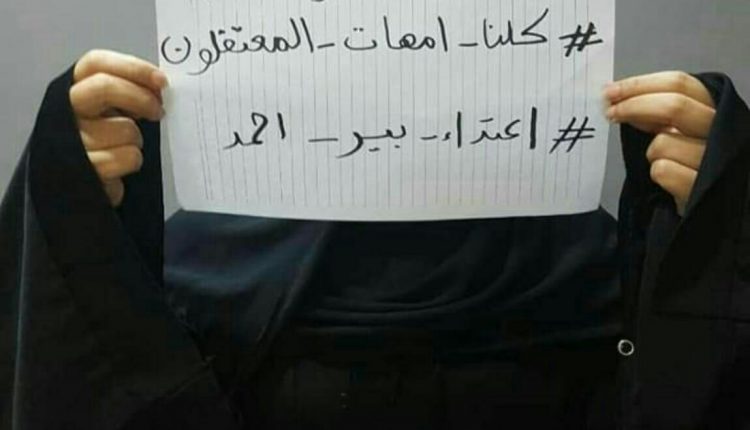 #كلنا_امهات_المعتقلون
#اعتداء_بير_احمد